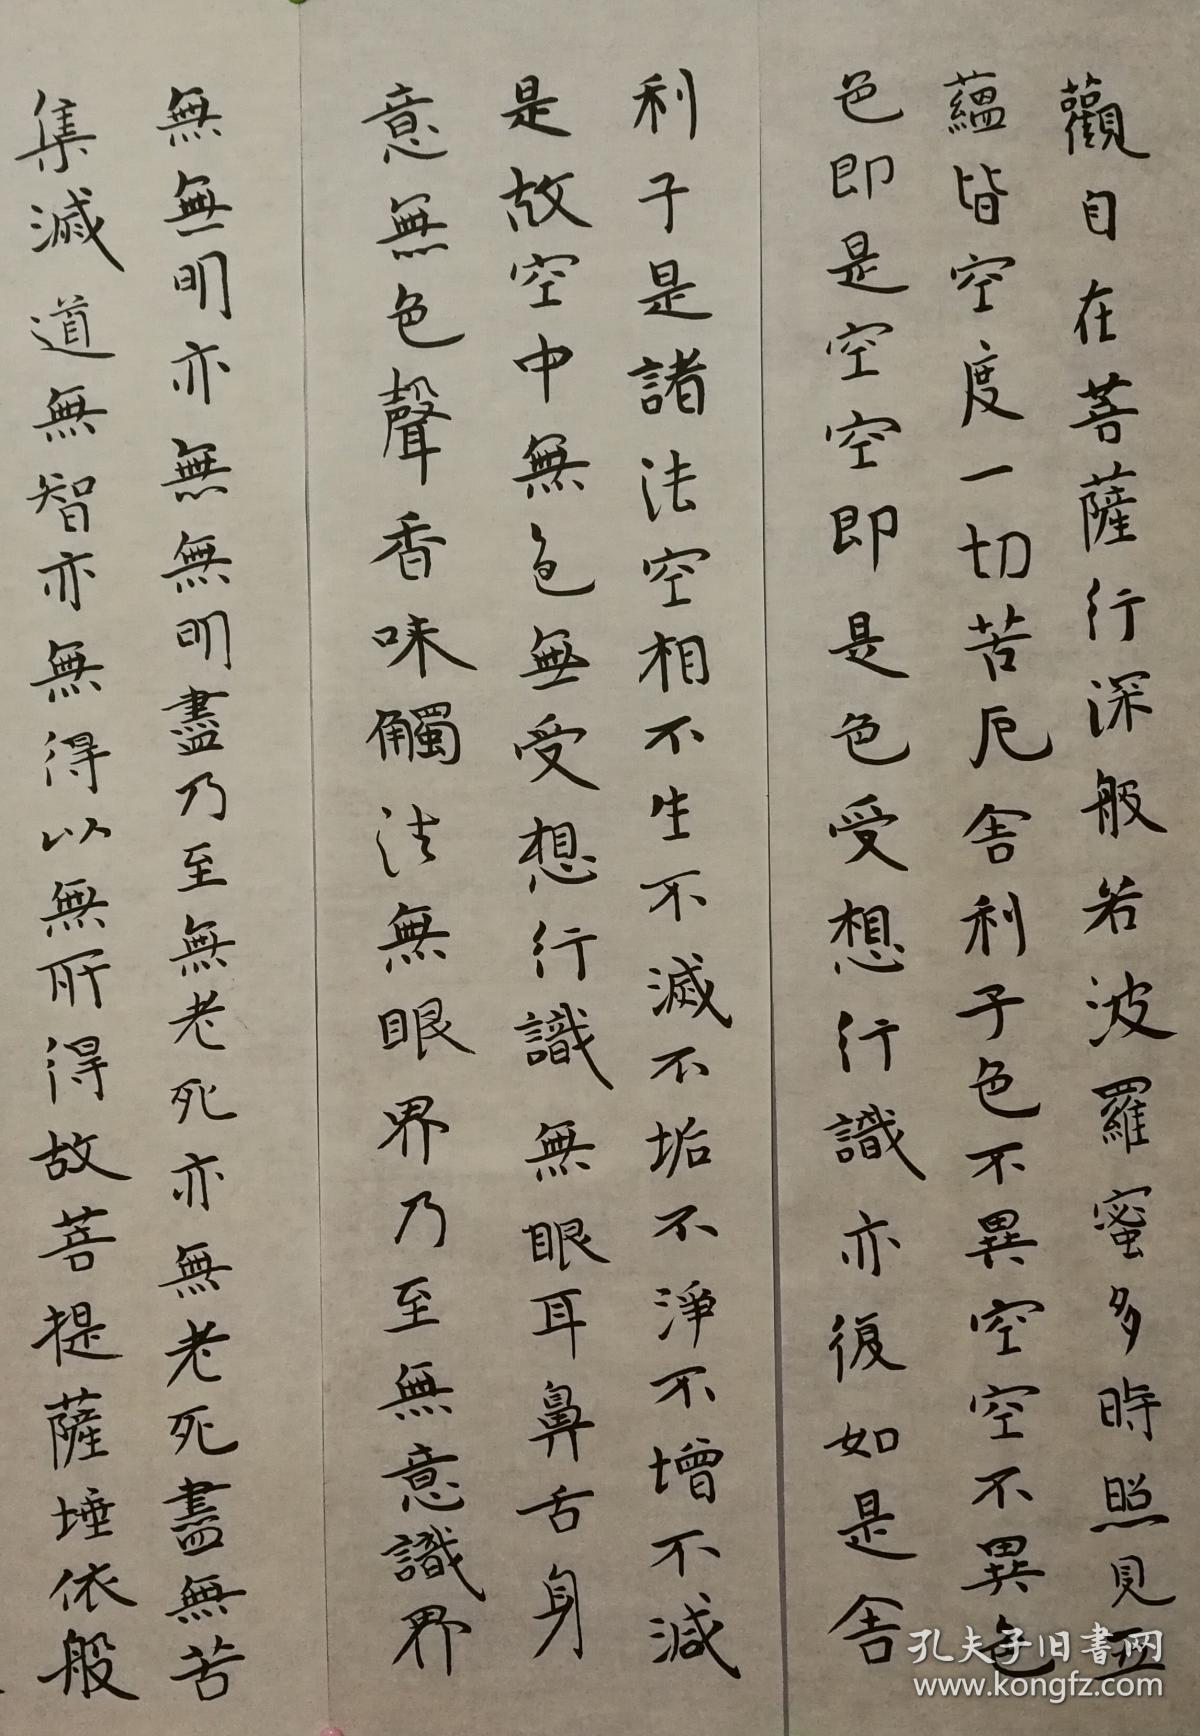 觀自在菩薩行深般若波羅蜜多時照見五
蘊皆空度一切苦厄舍利子色不異空空不異色
色即是空空即是色受想行識亦復如是舍
利子是諸法空相不生不滅不垢不淨不增不減
是故空中無色無受想行識無眼耳鼻舌身
意無色聲香味觸法無眼界乃至無意識界
無無明亦無無明盡乃至無老死亦無老死盡無苦
集滅道無智亦無得以無所得故菩提薩埵依般
孔夫子旧書网
www.kongfz.com